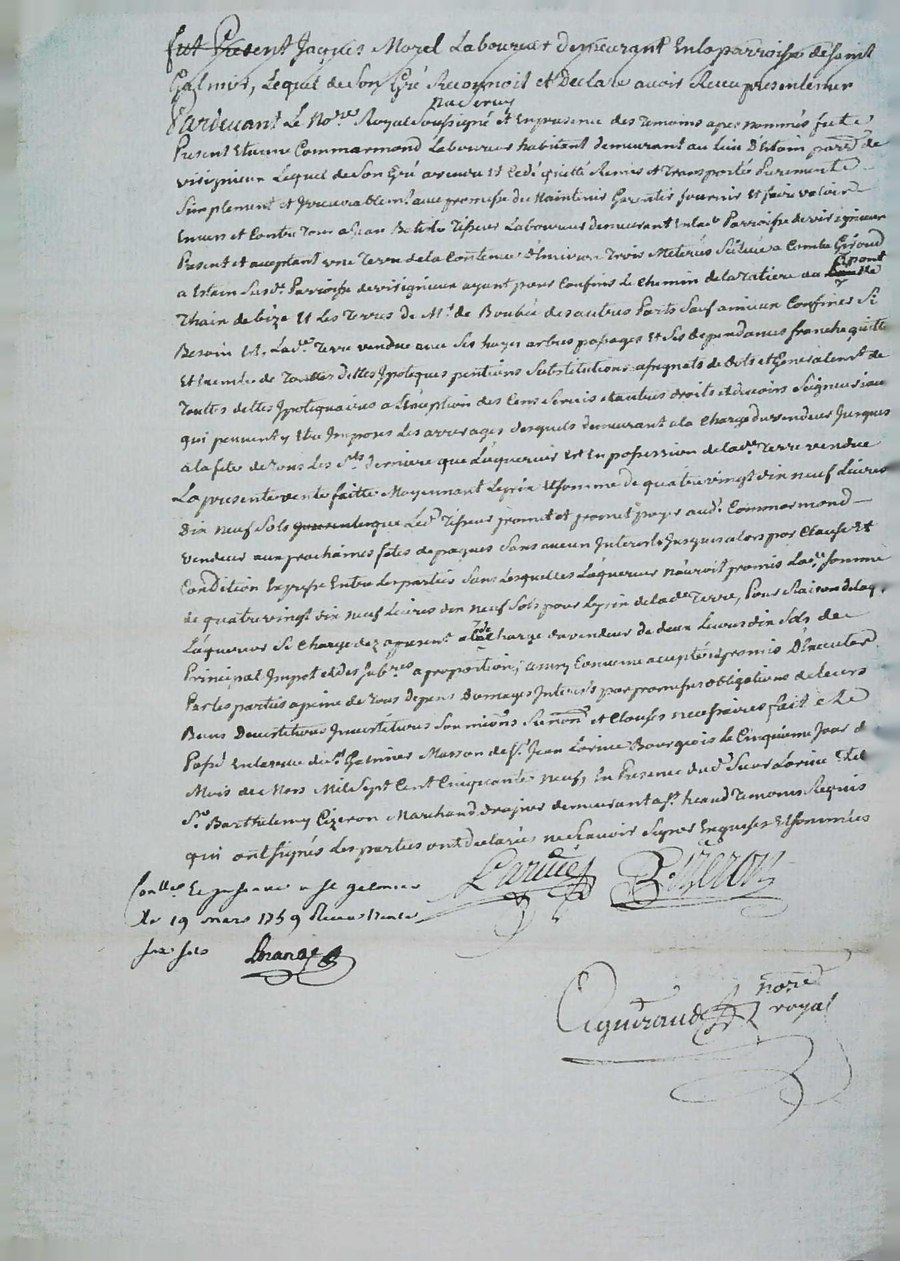 fut Present Jacques Morel Laboureur demeurant En la parroisse de saint
Galmier, Lequel de Son Gré Reconnoit et Declare avoir Receu presentement
Pardevant Le No.re Royal Soussigné et En presence des Temoins apres nommés fut
Present Etienne Commarmond Laboureur habitant demeurant au lieu D'Estain parr.e de
Lequel de Son Gré a vendu et Cedé quitté Remis et Transporté Purement
Simplement et Irrevocablem.t avec promesse de Maintenir Garentir fournir et faire valoir
Envers et Contre Tous a Jean Laboureur demeurant En la d.e Parroisse de
Present et acceptant une Terre de la Contenue D'Environ Trois Située a Combe
a Estain Susd.e Parroisse de ayant pour Confins le Chemin de la
de bize et Les Terres de M.r de Boubée des autres Parts Sauf a mieux Confiner Si
Besoin est. La d.e Terre vendue avec Ses hayes arbres passages et Ses dependances franche quitte
Et de Touttes dettes Ipoteques pentions Substitutions et Generalem.t de
Touttes dettes Ipotequaires a L'Exception des Cens Servis et autres droits et devoirs Seigneuriaux
qui peuvent y Etre Imposés Les arrerages desquels demeurant a la Charge du vendeur Jusques
a la fete de Tous Les S.ts derniere que L'aquereur Est En possession de la d.e Terre vendue
La presente vente faitte Moyennant Le prix et Somme de quatre vingt dix neuf Livres
Dix neuf Sols que Led. promet payer aud. Commarmond
vendeur aux prochaines fetes de paques Sans aucun Interets Jusques alors par Clause et
Condition Expresse Entre Les parties Sans Lesquelles L'aquereur n'auroit promis La d.e Somme
de quatre vingt dix neuf Livres dix neuf Sols pour Le prix de la d.e Terre, Pour Raison de laq.
L'aquereur Se Charge dez a present a la Charge du vendeur de deux Livres dix Sols de
Principal Impot et des a proportion; ainsy Convenu accepté et promis D'Executer
Par les parties a peine de Tous depens Domages Interets par promesses obligations de Leurs
Biens Devestitions Investitures Soumissions et Clauses necessaires fait et
Passé En la ville de S.t Galmier Maison de S.r Jean Larive Bourgeois le Cinquieme Jour du
Mois de Mars Mil Sept Cent Cinquante neuf, En Presence dud. Sieur Larive Et de
S.r Barthelemy Cizeron Marchand demeurant Temoins Requis
qui ont Signés Les parties ont declarées ne Scavoir Signer Enquises Et Sommées
Larive Cizeron
a St galmier
le 19 mars 1759 Receu
six sols
nore
royal